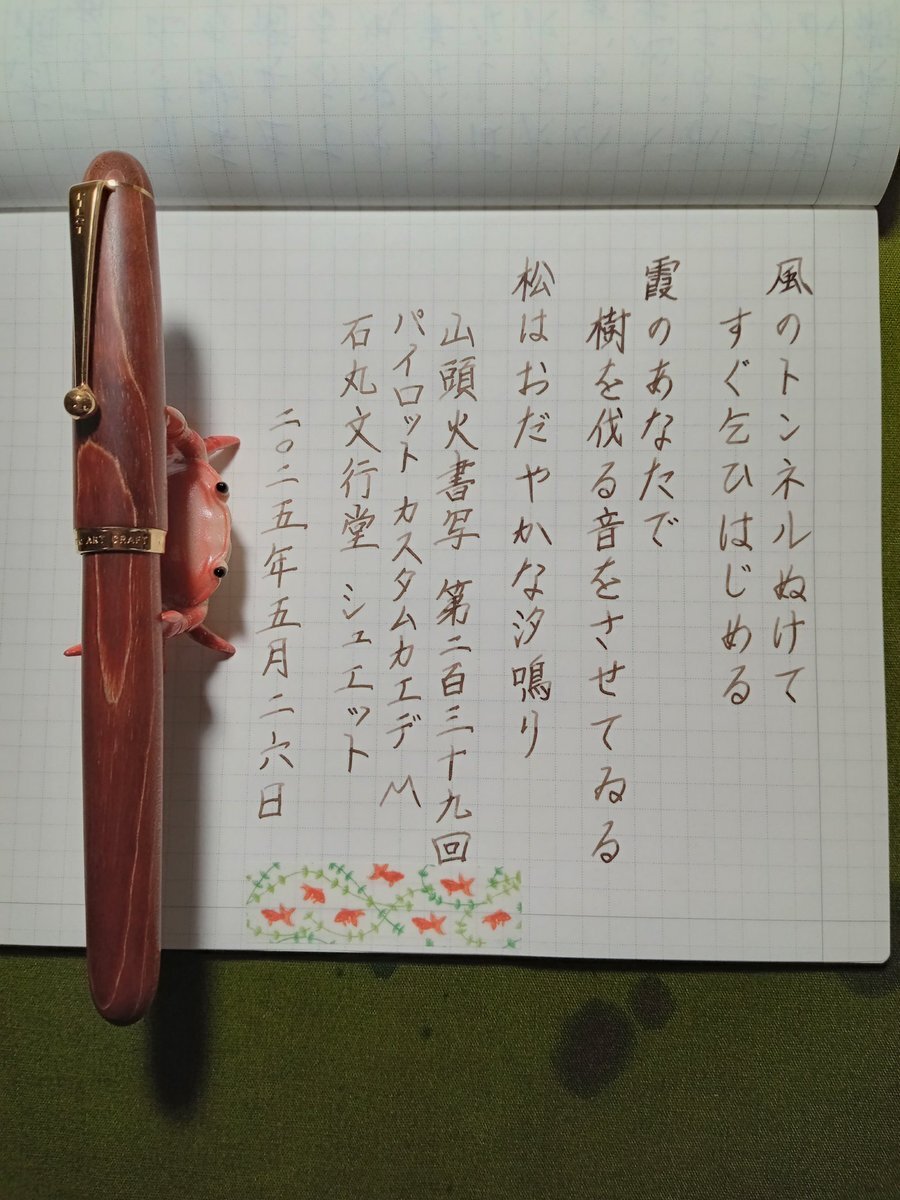 風のトンネルぬけて
すぐ乞ひはじめる
霞のあなたで
樹を伐る音をさせてゐる
松はおだやかな汐鳴り
山頭火書写 第二百三十九回
パイロット カスタムカエデ M
石丸文行堂 シュエット
二〇二五年五月二六日
ART CRAFT